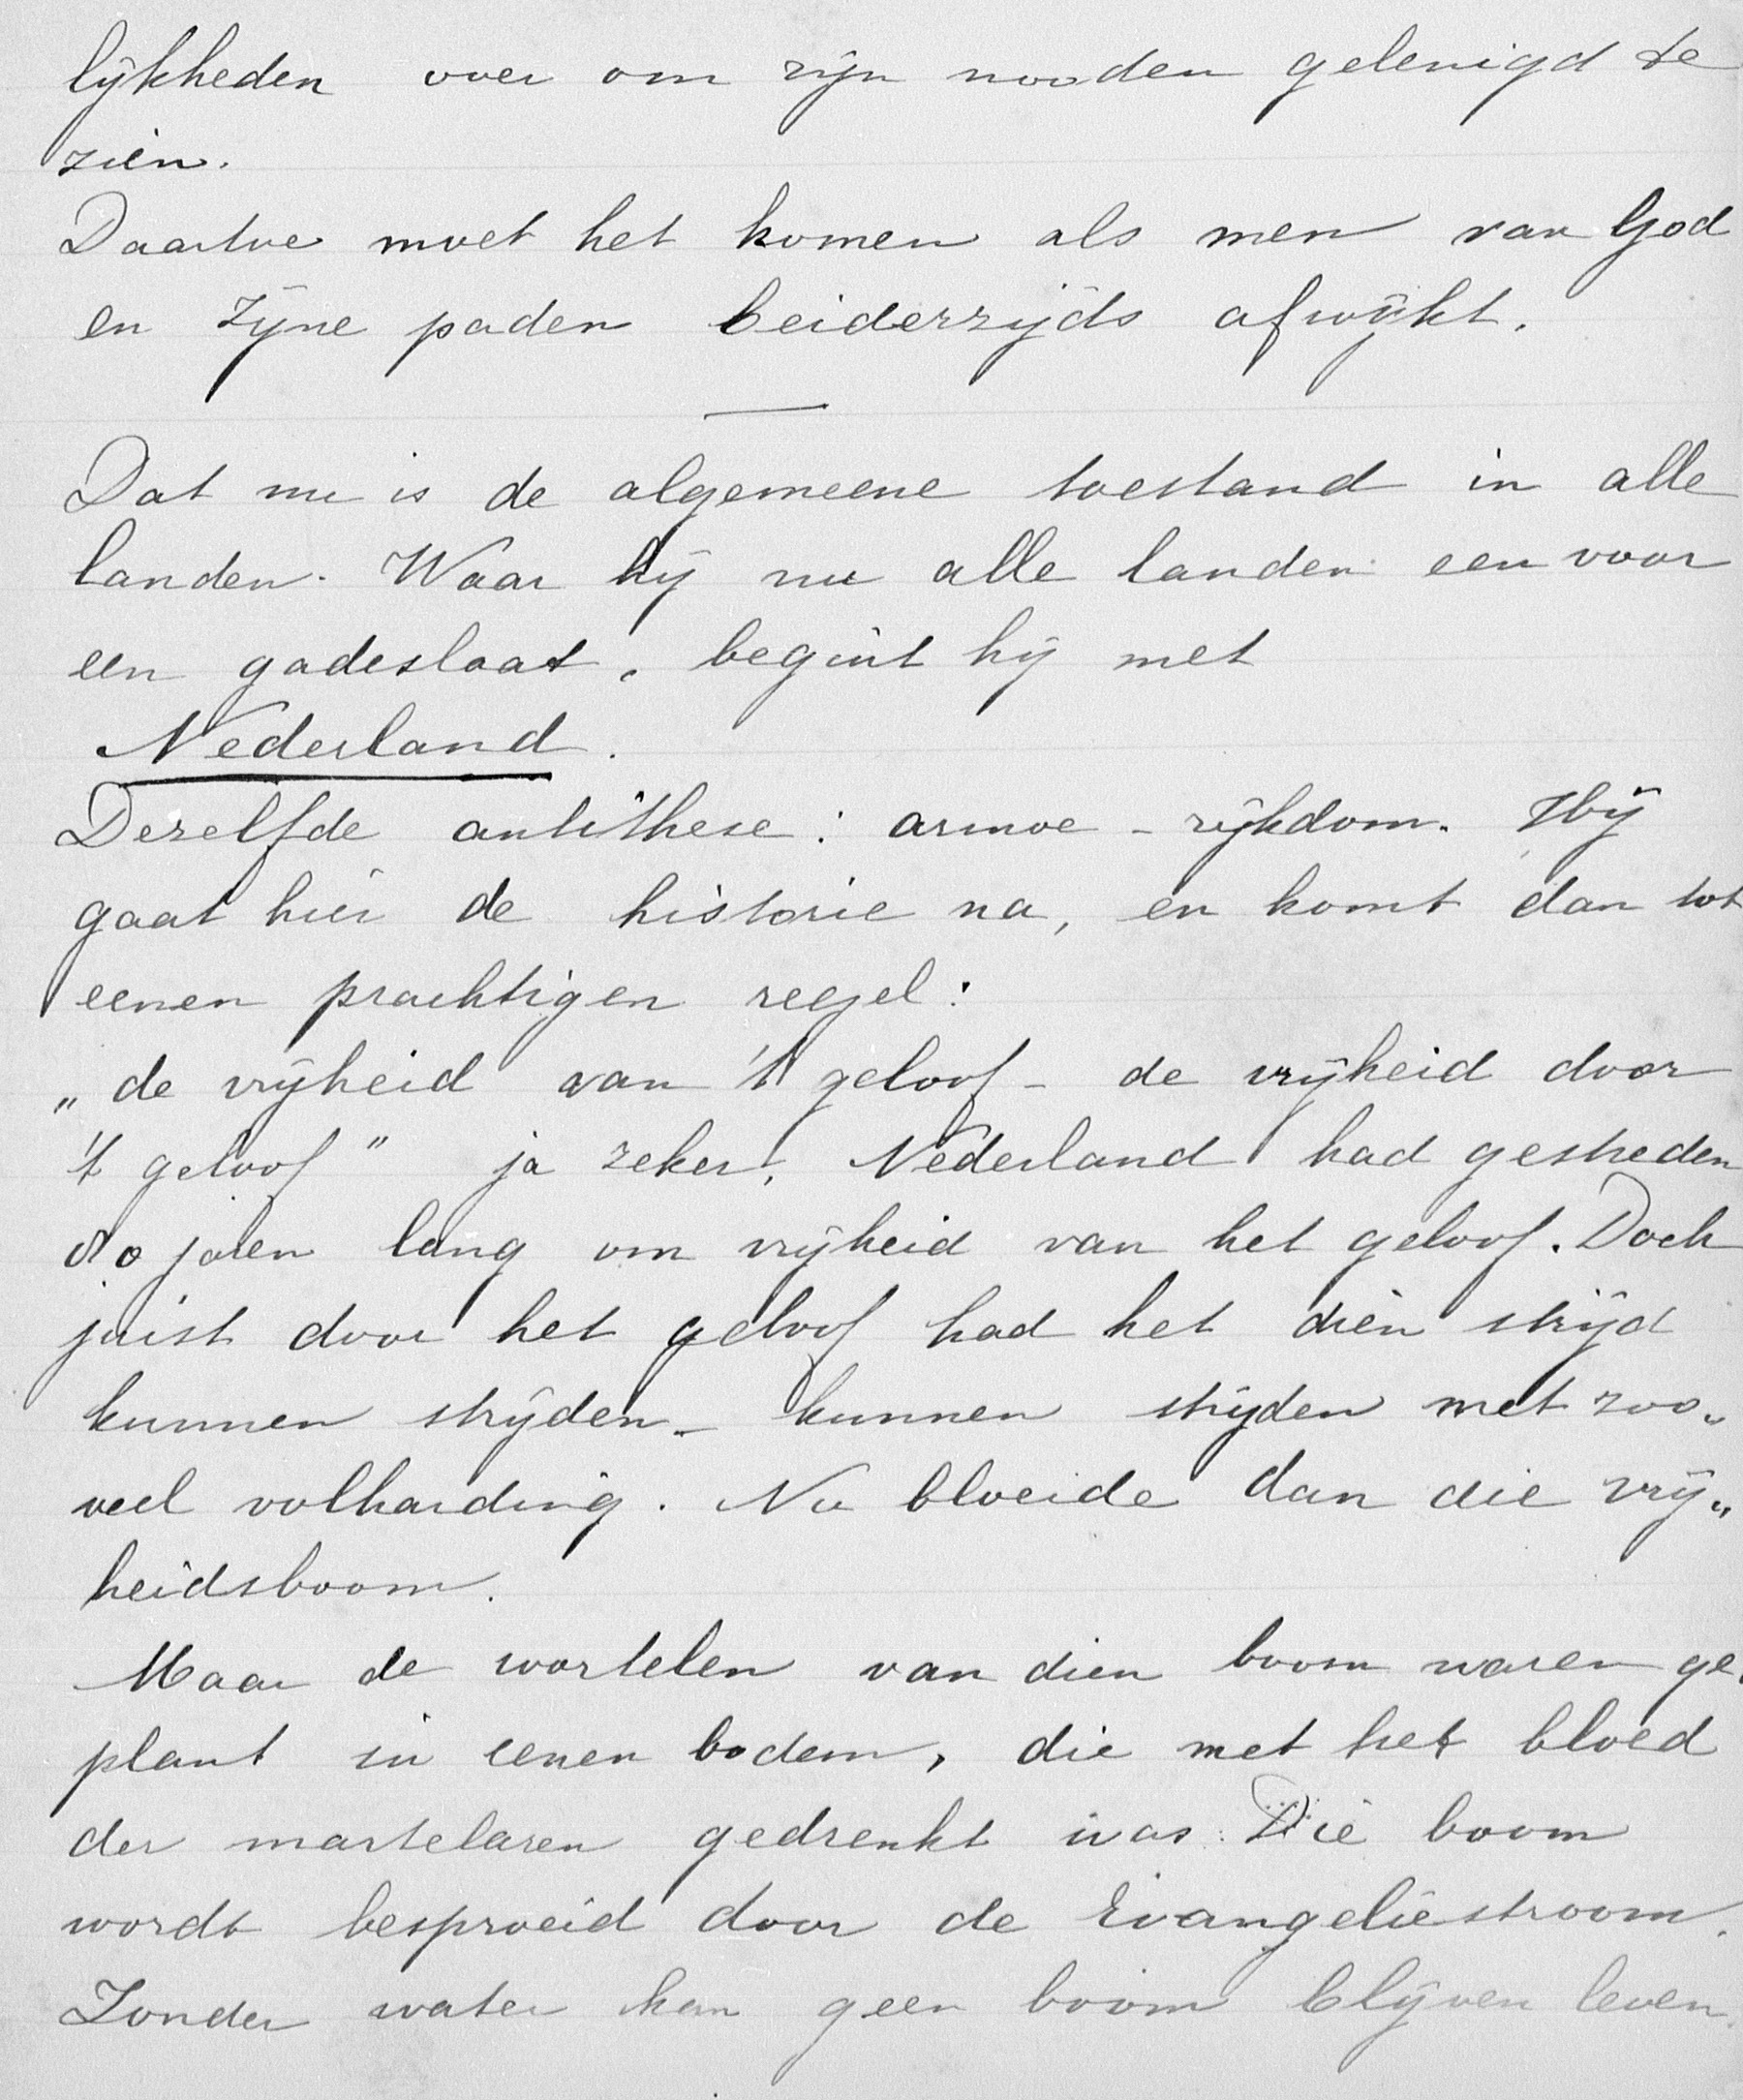 lijkheden over om zijn nooden gelenigd te
zien.
Daartoe moet het komen als men van God
en Zijne paden beiderzijds afwijkt.
—
Dat nu is de algemeene toestand in alle
landen. Waar hij nu alle landen een voor
een gadeslaat, begint hij met
Nederland.
Dezelfde antithese: armoe – rijkdom. Hij
gaat hier de historie na, en komt dan tot
eenen prachtigen regel:
„de vrijheid van 't geloof – de vrijheid door
't geloof" ja zeker, Nederland had gestreden
80 jaren lang om vrijheid van het geloof. Doch
juist door het geloof had het dien strijd
kunnen strijden – kunnen strijden met zoo„
veel volharding. Nu bloeide dan die vrij„
heidsboom.
Maar de wortelen van dien boom waren ge„
plant in eenen bodem, die met het bloed
der martelaren gedrenkt was. Die boom
wordt besproeid door de Evangeliestroom.
Zonder water kan geen boom blijven leven.